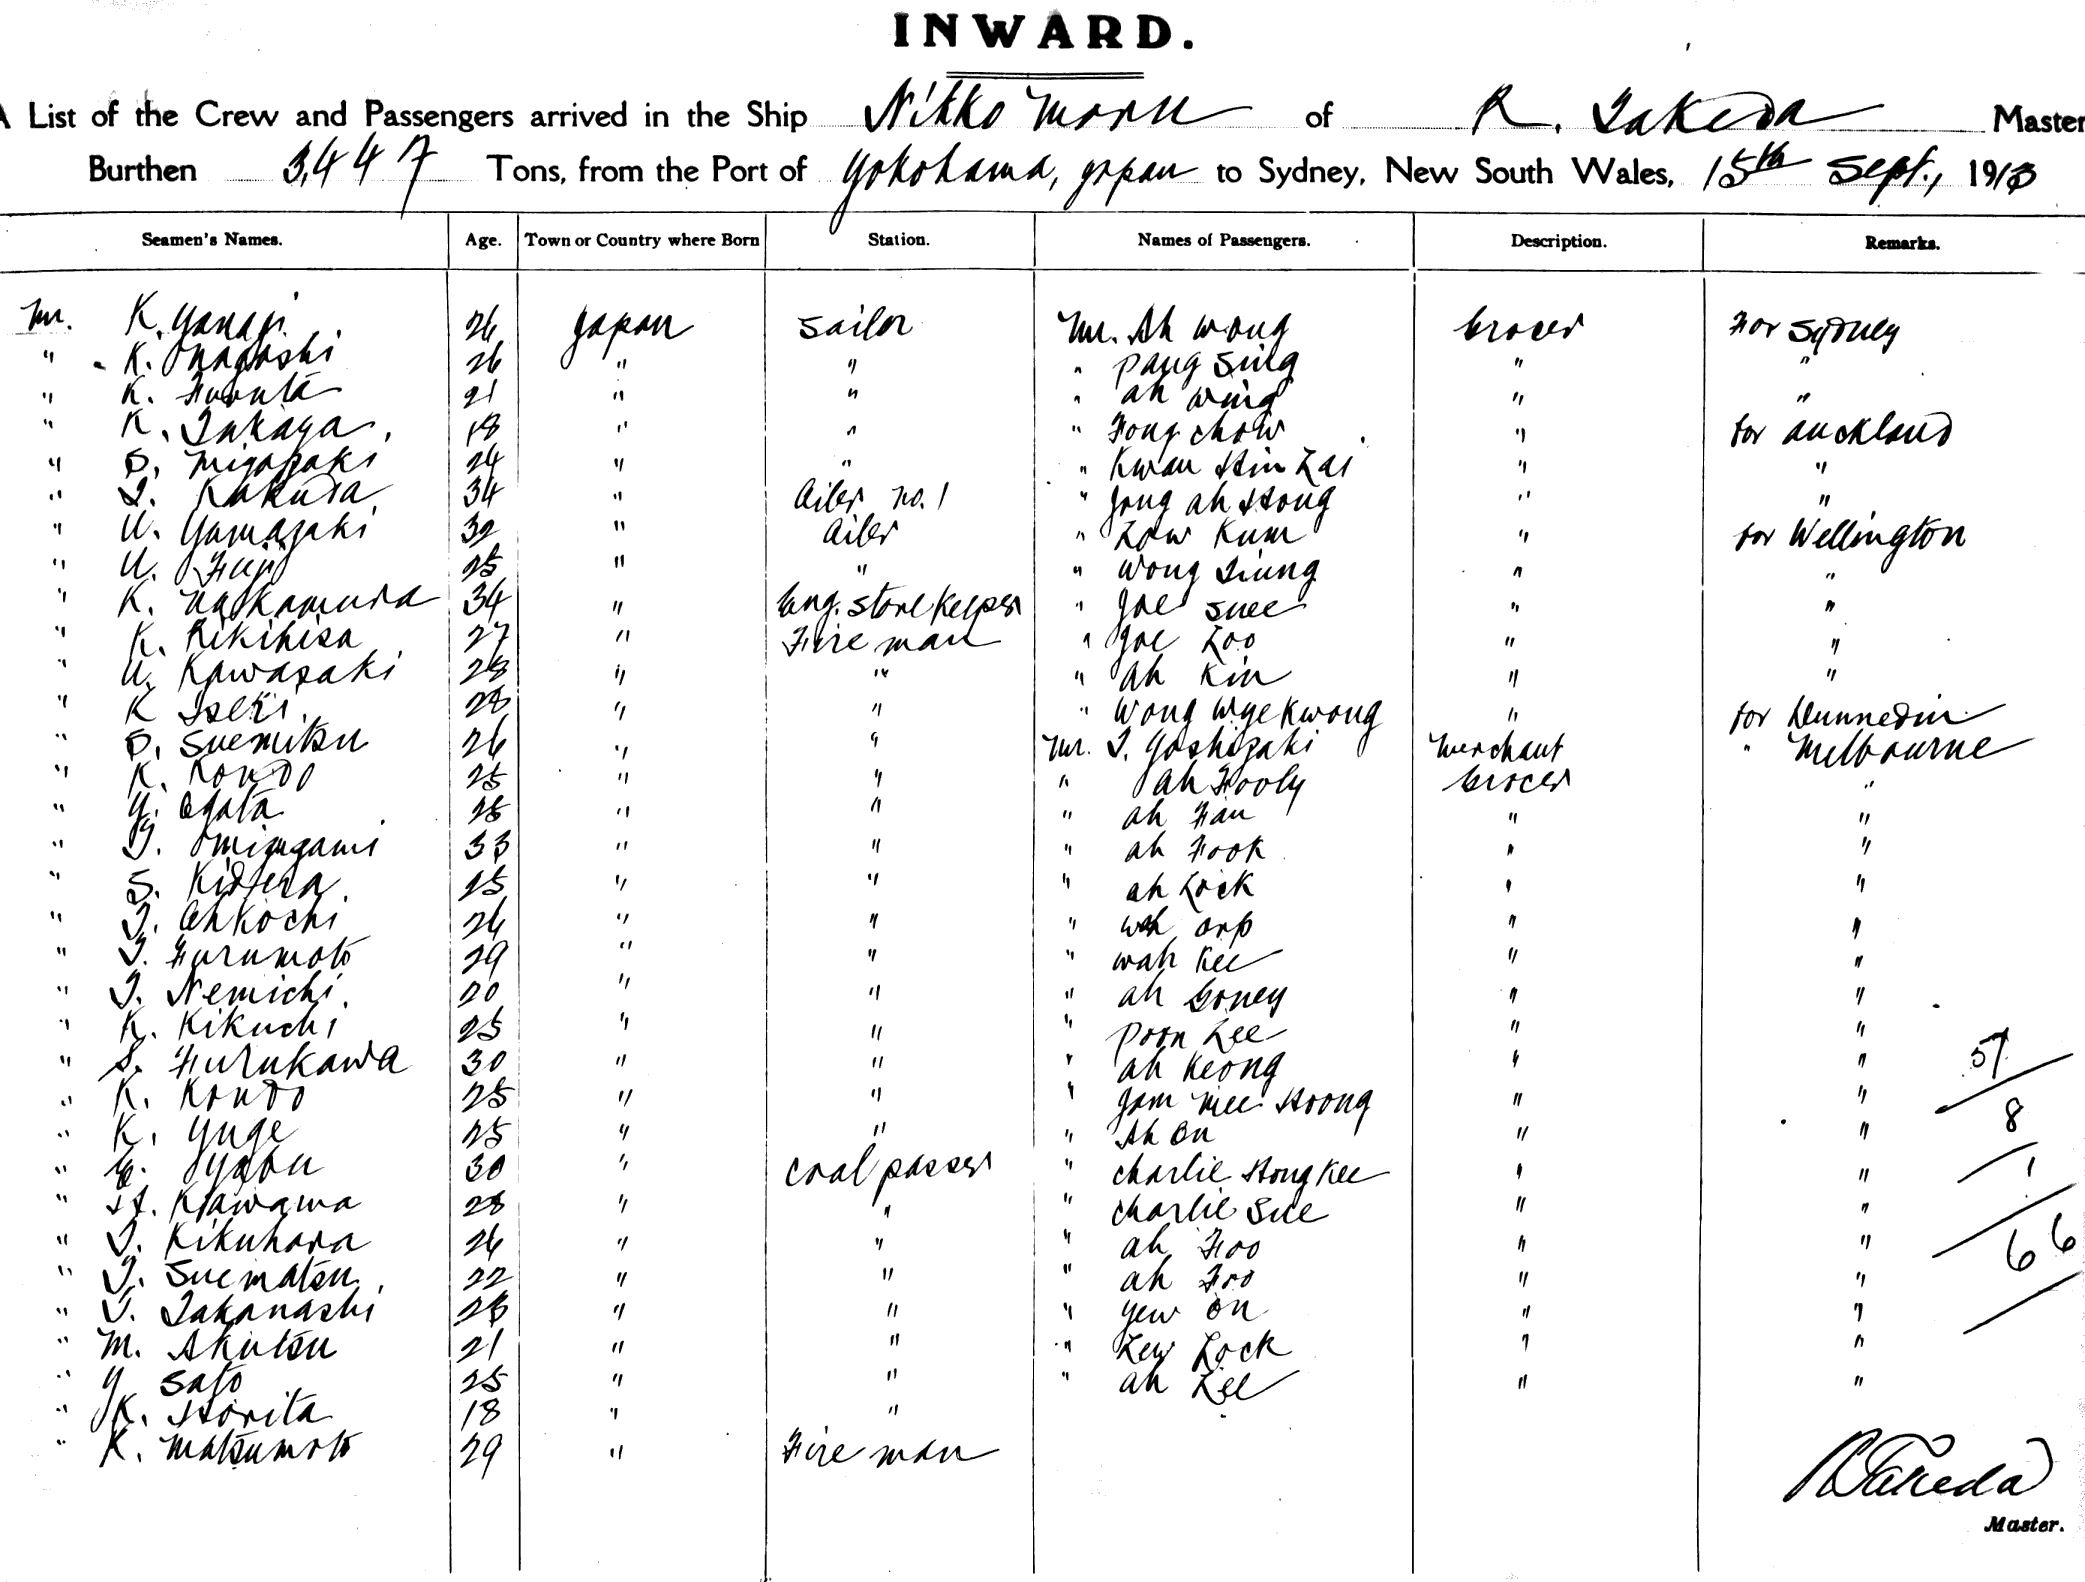 INWARD.
A List of the Crew and Passengers arrived in the Ship Nikko Maru of R. Takeda Master
Burthen 3,447 Tons, from the Port of Yokohama, Japan to Sydney, New South Wales, 15th Sept., 1913
Seamen's Names. Age. Town or Country where Born Station. Names of Passengers. Description. Remarks.
Mr. K. Yanagi 26 Japan Sailor Mr. Ah Wong Grocer For Sydney
" K. Nagoshi 26 " " " Pang Sing " "
" K. Furuta 21 " " " Ah Wing " "
" K. Takaya 18 " " " Fong Chow " for Auckland
" S. Miyazaki 24 " " " Kwan Hin Lai " "
" T. Kakuda 34 " Oiler No. 1 " Jong Ah Hong " "
" U. Yamazaki 32 " Oiler " Low Kum " for Wellington
" U. Fuji 25 " " " Wong Tiung " "
" K. Nakamura 34 " Eng. Store Keeper " Joe Suee " "
" K. Rikihisa 27 " Fire man " Joe Loo " "
" U. Kawasaki 28 " " " Ah Kin " "
" K Iseki 28 " " " Wong Wye Kwong " for Dunnedin
" S. Suemitsu 26 " " Mr. T. Yoshizaki Merchant " Melbourne
" K. Kondo 25 " " " Ah Fooly Grocer "
" Y. Ogata 25 " " " Ah Fan " "
" T. Omizugami 33 " " " Ah Fook " "
" S. Kidera 25 " " " Ah Lock " "
" T. Ohkochi 26 " " " Wah Orp " "
" T. Furumoto 29 " " " Wah Kee " "
" T. Nemichi 20 " " " Ah Goney " "
" K. Kikuchi 25 " " " Poon Lee " "
" S. Furukawa 30 " " " Ah Keong " " 57
" K. Kondo 25 " " " Jam Mee Hoong " "
" K. Yuge 25 " " " Ah On " " 8
" Oyabu 30 " Coal passer " Charlie Hong Kee " " 1
" H. Kawama 28 " " " Charlie Sue " "
" T. Kikuhara 26 " " " Ah Foo " " 66
" T. Suematsu 22 " " " Ah Foo " "
" T. Takanashi 28 " " " Yew On " "
" M. Akutsu 21 " " " Lew Lock " "
" Y Sato 25 " " " Ah Lee " "
" K. Horita 18 " "
" K. Matsumoto 29 " Fire man
R Takeda
Master.